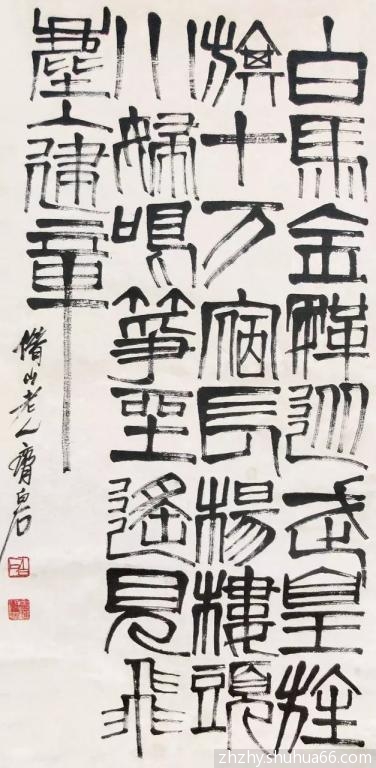 白馬金鞍從武皇旌
旗十万宿長楊樓頭
小婦鳴箏坐遙見飛
塵入建章
借山老人齊白石
zhzhy.shuhua66.com